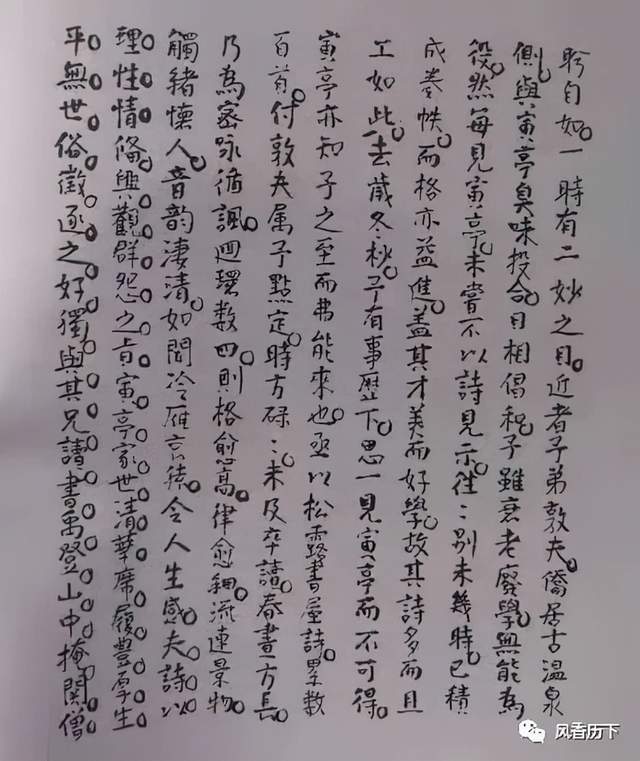 矜自如。一時有二妙之目。近者予弟敦夫。僑居古溫泉
側。與寅亭臭味投合。日相倡和。予雖衰老廢學。無能為
役。然每見寅亭。未嘗不以詩見示。往〻別未幾時。已積
成卷帙。而格亦益進。蓋其才美而好學。故其詩多而且
工如此。去歲冬杪。予有事歷下。思一見寅亭而不可得。
寅亭亦知予之至而弗能來也。亟以松露書屋詩。累數
百首。付敦夫属予點定。時方碌〻。未及卒讀。春晝方長。
乃為密咏循諷。週環数四。則格愈高。律愈細。流連景物。
觸緒懷人。音韵淒清。如聞冷雁哀猿。令人生感。夫詩以
理性情。脩興觀群怨之旨。寅亭家世清華。席履豊厚。生
平無世俗徵逐之好。獨與其兄讀書禹登山中。掩関僧
风香历下